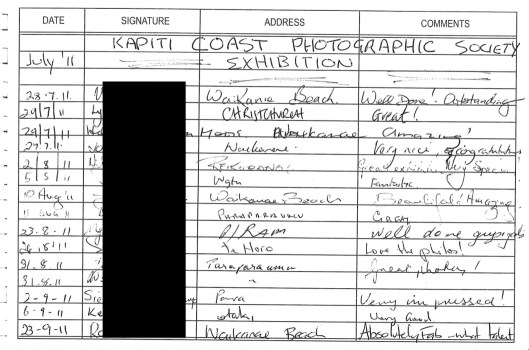 DATE SIGNATURE ADDRESS COMMENTS
KAPITI COAST PHOTOGRAPHIC SOCIETY
July '11 EXHIBITION
28.7.11. Waikanae Beach. Well Done! Outstanding
29/7/11 CHRISTCHURCH Great!
29/7/11 Waikanae Amazing!
Waikanae. Very nice, congratulations
2/8/11 Very Special
5/8/11 Wgtn Fantastic
10 Aug 11 Waikanae Beach Beautiful & Amazing
11 AUG 11 PARAPARAUMU Great
23.8.11 P/RAM well done guys/gals
Te Horo Love the photos!
31.8.11 Paraparaumu great photos!
31.8.11 "
2-9-11 Para Very impressed!
6-9-11 otaki Very Good
23-9-11 Waikanae Beach Absolutely Fab - what talent